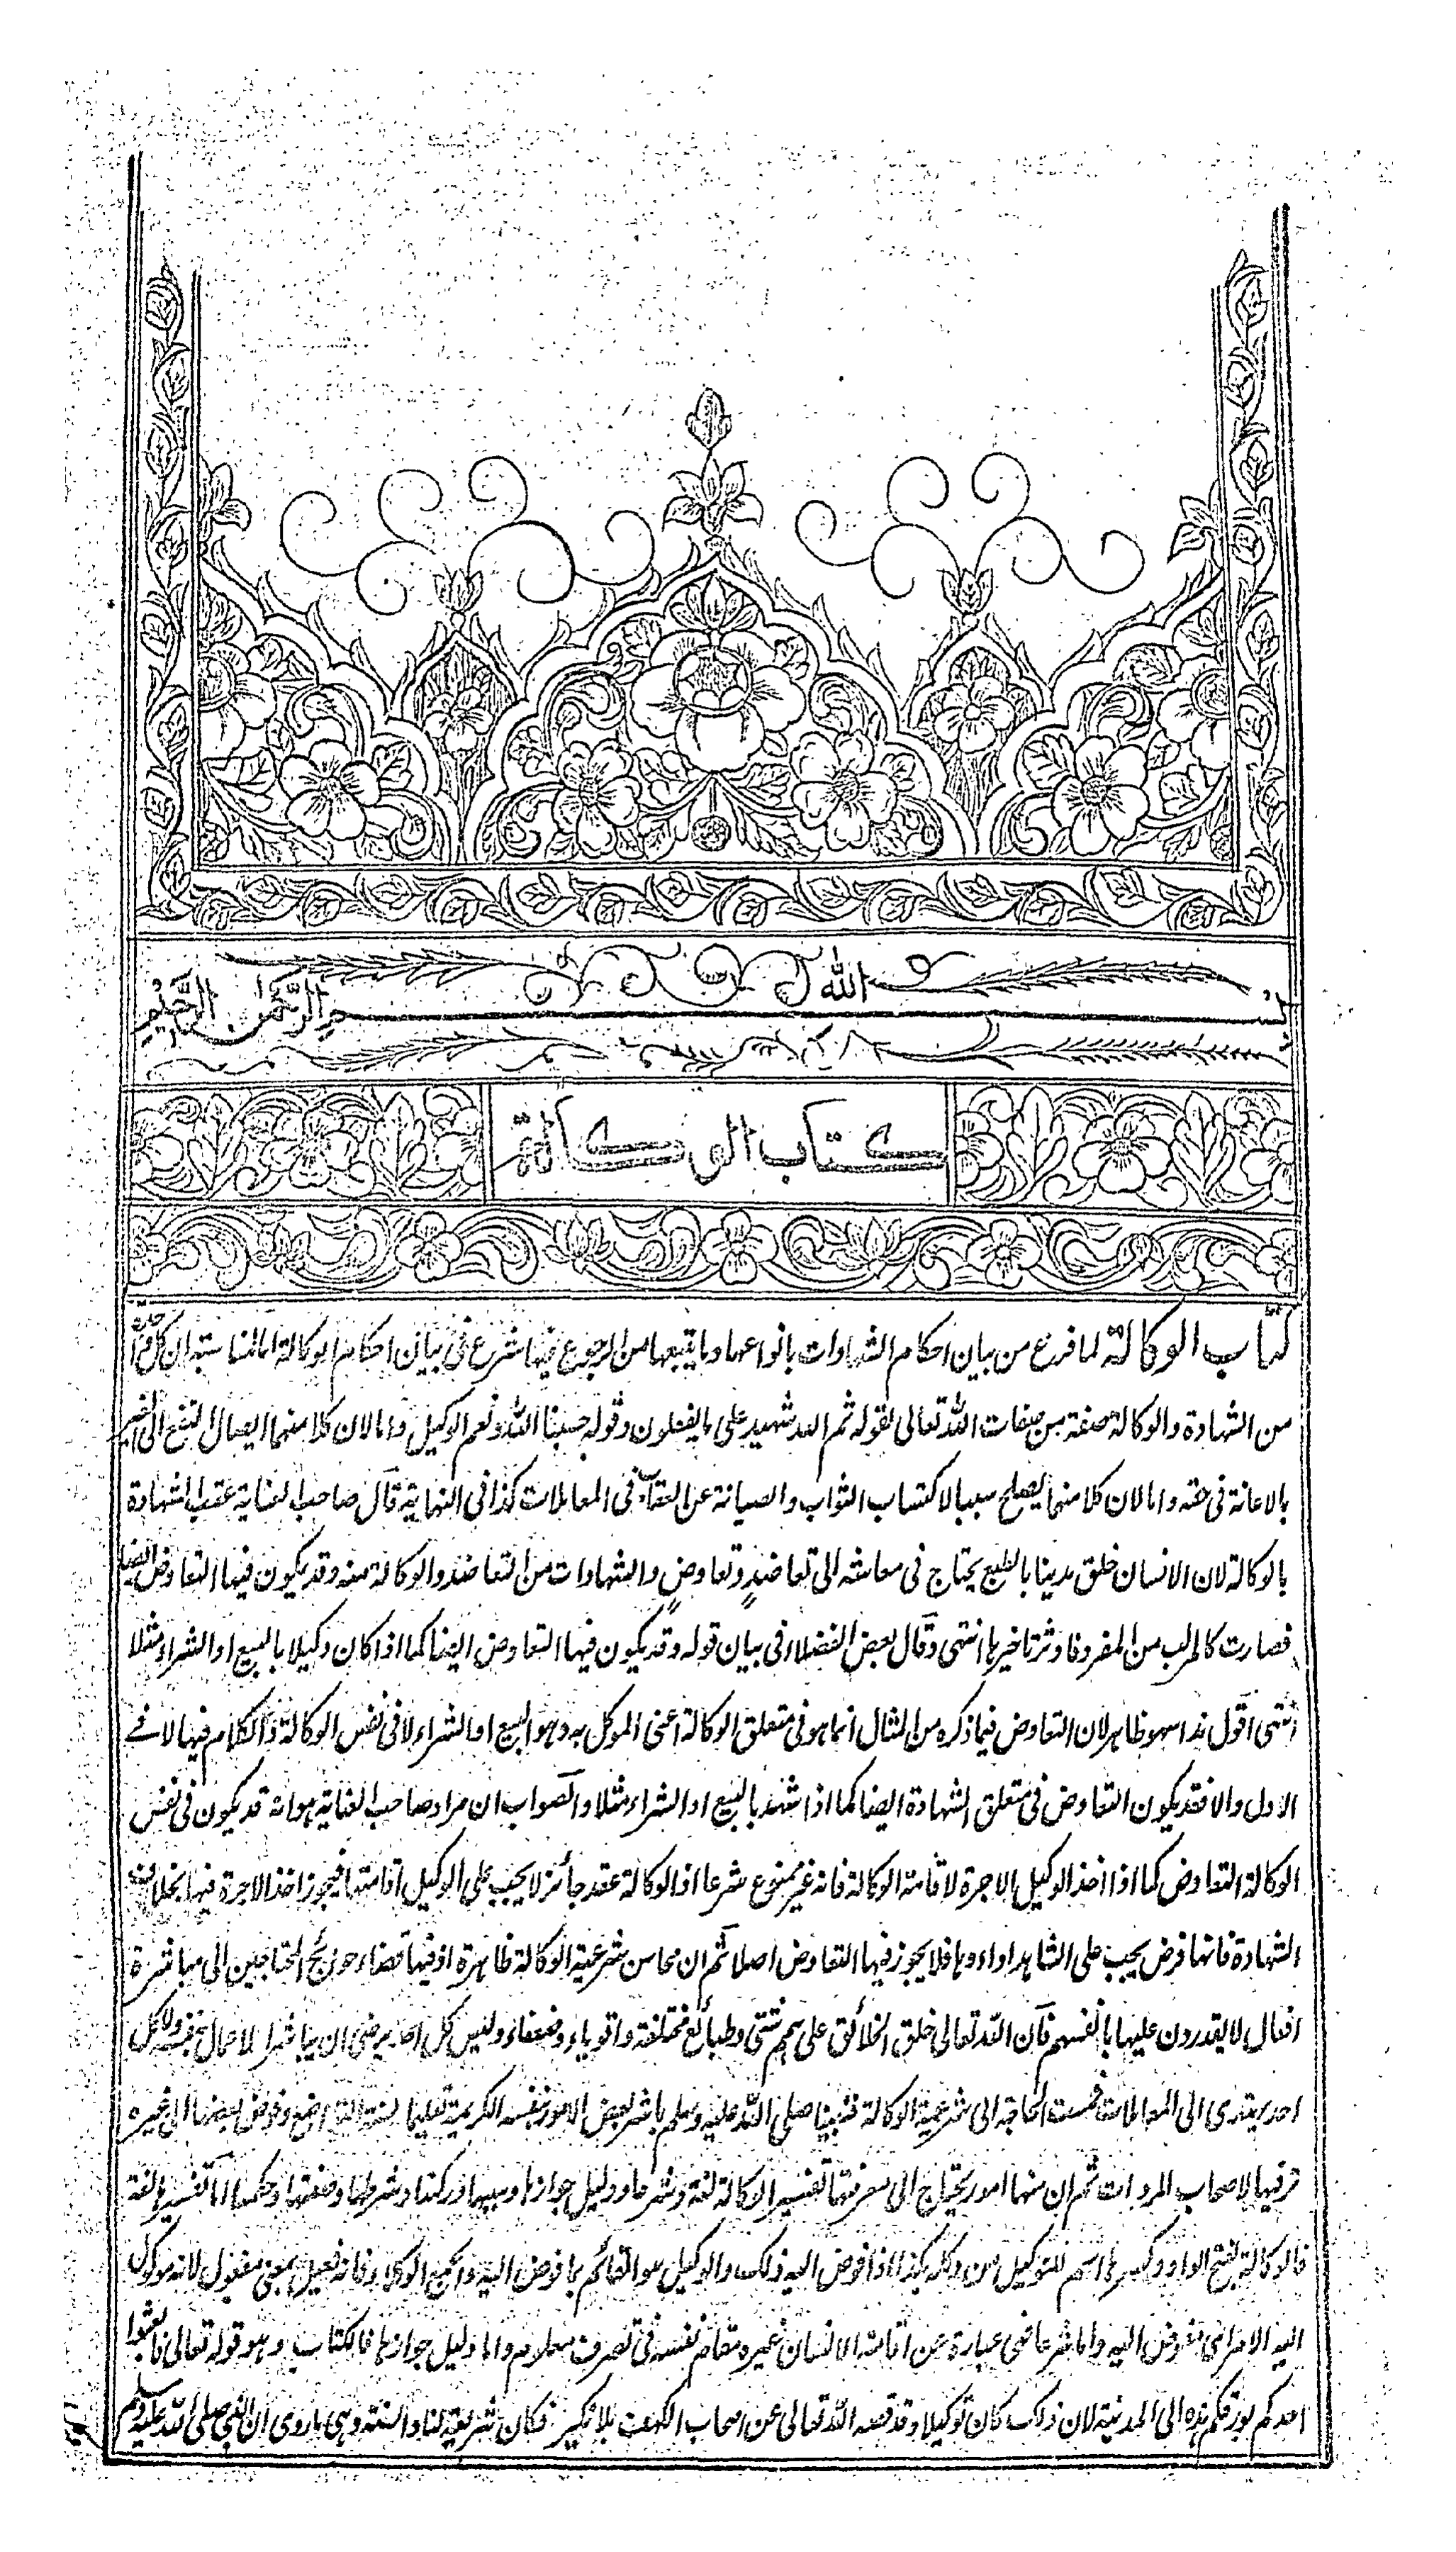 بسم الله الرحمن الرحيم
كتاب الوكالة
كتاب الوكالة لما فرغ من بيان احكام الشهادات بانواعها وما يتبعها من الرجوع فيها شرع في بيان احكام الوكالة اما المناسبة ان كل واحدة
من الشهادة والوكالة صفة من صفات الله تعالى لقوله ثم الله شهيد على ما يفعلون وقوله حسبنا الله ونعم الوكيل واما لان كلا منهما ايصال النفع الى الغير
بالاعانة في حقه واما لان كلا منهما يصلح سببا لاكتساب الثواب والصيانة عن العقاب في المعاملات كذا في النهاية قال صاحب العناية عقب الشهادة
بالوكالة لان الانسان خلق مدنيا بالطبع يحتاج في معاشه الى تعاضد وتعاوض والشهادات من التعاضد والوكالة منه وقد يكون فيها التعاوض ايضا
فصارت كالمركب من المفرد فاوثر تاخيرها انتهى وقال بعض الفضلاء في بيان قوله وقد يكون فيها التعاوض ايضا كما اذا كان وكيلا بالبيع او الشراء مثلا
انتهى اقول هذا سهو ظاهر لان التعاوض فيما ذكره من المثال انما هو في متعلق الوكالة اعنى الموكل به وهو البيع او الشراء لا في نفس الوكالة والكلام فيها لا في
الاول والا فقد يكون التعاوض في متعلق الشهادة ايضا كما اذا شهد بالبيع او الشراء مثلا والصواب ان مراد صاحب العناية هو انه قد يكون في نفس
الوكالة التعاوض كما اذا اخذ الوكيل الاجرة لاقامة الوكالة فانه غير ممنوع شرعا اذ الوكالة عقد جائز لا يجب على الوكيل اقامتها فيجوز اخذ الاجرة فيها بخلاف
الشهادة فانها فرض يجب على الشاهد اداءوها فلا يجوز فيها التعاوض اصلا ثم ان محاسن شرعية الوكالة ظاهرة اذ فيها قضاء حوائج المحتاجين الى مباشرة
افعال لا يقدرون عليها بانفسهم فان الله تعالى خلق الخلائق على همم شتى وطبائع مختلفة واقوياء وضعفاء وليس كل احد يرضى ان يباشر الاعمال بنفسه ولا كل
احد يهتدى الى المعاملات فمست الحاجة الى شرعية الوكالة فنبينا صلى الله عليه وسلم باشر بعض الامور بنفسه الكريمة تعليما لسنة التواضع وفوض بعضها الى غيره
ترفيها لاصحاب المروات ثم ان منها امور يحتاج الى معرفتها تفسير الوكالة لغة وشرعا ودليل جوازها وسببها وركنها وشرطها وصفتها وحكمها اما تفسيرها لغة
فالوكالة بفتح الواو وكسرها اسم للتوكيل من وكله بكذا اذا فوض اليه ذلك والوكيل هو القائم بما فوض اليه والجمع الوكلاء فانه فعيل بمعنى مفعول لانه موكول
اليه الامر اى مفوض اليه واما شرعا فهى عبارة عن اقامة الانسان غيره مقام نفسه في تصرف معلوم واما دليل جوازها فالكتاب وهو قوله تعالى فابعثوا
احدكم بورقكم هذه الى المدينة لان ذلك كان توكيلا وقد قصه الله تعالى عن اصحاب الكهف بلا نكير فكان شريعة لنا والسنة وهى ما روى ان النبي صلى الله عليه وسلم